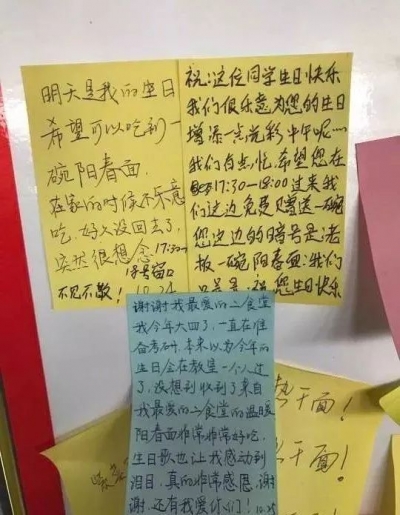 明天是我的生日
希望可以吃到一
碗阳春面,
在家的时候不乐意
吃,好久没回去了,
突然很想念 17:30~
18号窗口
不见不散! 10.24
祝:这位同学生日快乐
我们很乐意为您的生日
增添一点光彩 中午呢……
我们有点忙,希望您在
17:30-18:00过来我
们这边免费赠送一碗
您这边的暗号是:老
板一碗阳春面:我们
口号是:祝您生日快乐
谢谢我最爱的二食堂
我今年大四了,一直在准
备考研,本来以为今年的
生日会在教室一个人过
了,没想到收到了来自
我最爱的二食堂的温暖
阳春面非常非常好吃,
生日歌也让我感动到
泪目,真的非常感恩,谢
谢,还有我爱你们! 10.25
热干面!
干面!